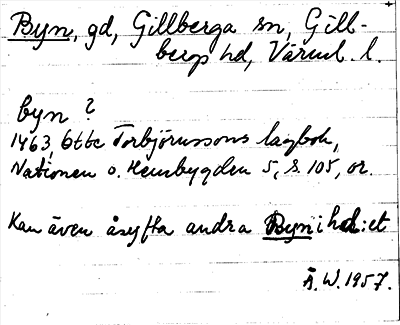 Byn, gd, Gillberga sn, Gill-
bergs hd, Värml. l.
byn ?
1463, Otte Torbjörnssons lagbok,
Nationen o. Hembygden 5, s. 105, or.
Kan även åsyfta andra Byn i hd:et
Ä. W. 1957.